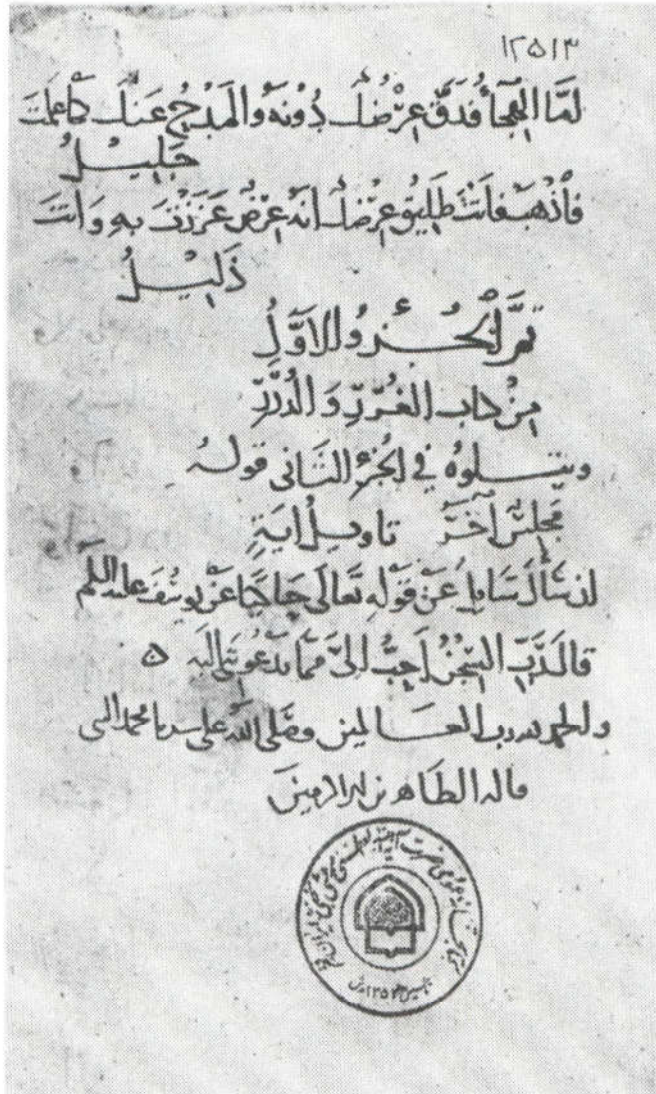 ١٢٥١٣
امَّا الهِجَآءُ فَدَقَّ عِرْضُكَ دُونَهُ وَالمَدْحُ عَنْكَ كمَا عَلِمْتَ
جَلِيْلُ
فَاذْهَبْ فَانْتَ طَلِيْقُ عِرْضِكَ انَّهُ عِرْضٌ عَزَزْتَ بِهِ وَانْتَ
ذَلِيْلُ
تَمَّ الْجُـزءُ الاوَّلُ
مِنْ كتاب الغُرَرِ وَالدُّرَرِ
ويتلوهُ فِي الجُزءِ الثَّانى قولهُ
مَجْلِسٌ آخَرُ تاويلُ ايَةٍ
ان سَأَلَ سَايِلٌ عَنْ قَوْلِهِ تَعَالَى حَاكِيًا عَنْ يُوسُفَ عليه السلم
قَالَ رَبِّ السِّجْنُ اَحَبُّ الىَّ مِمَّا يَدْعُونَنِى اليَهِ ه
والحمد لله رب العالمين وصَلَّى اللهُ على سيدنا محمد النبى
واله الطاهرين
تأسيس ١٣٥٤